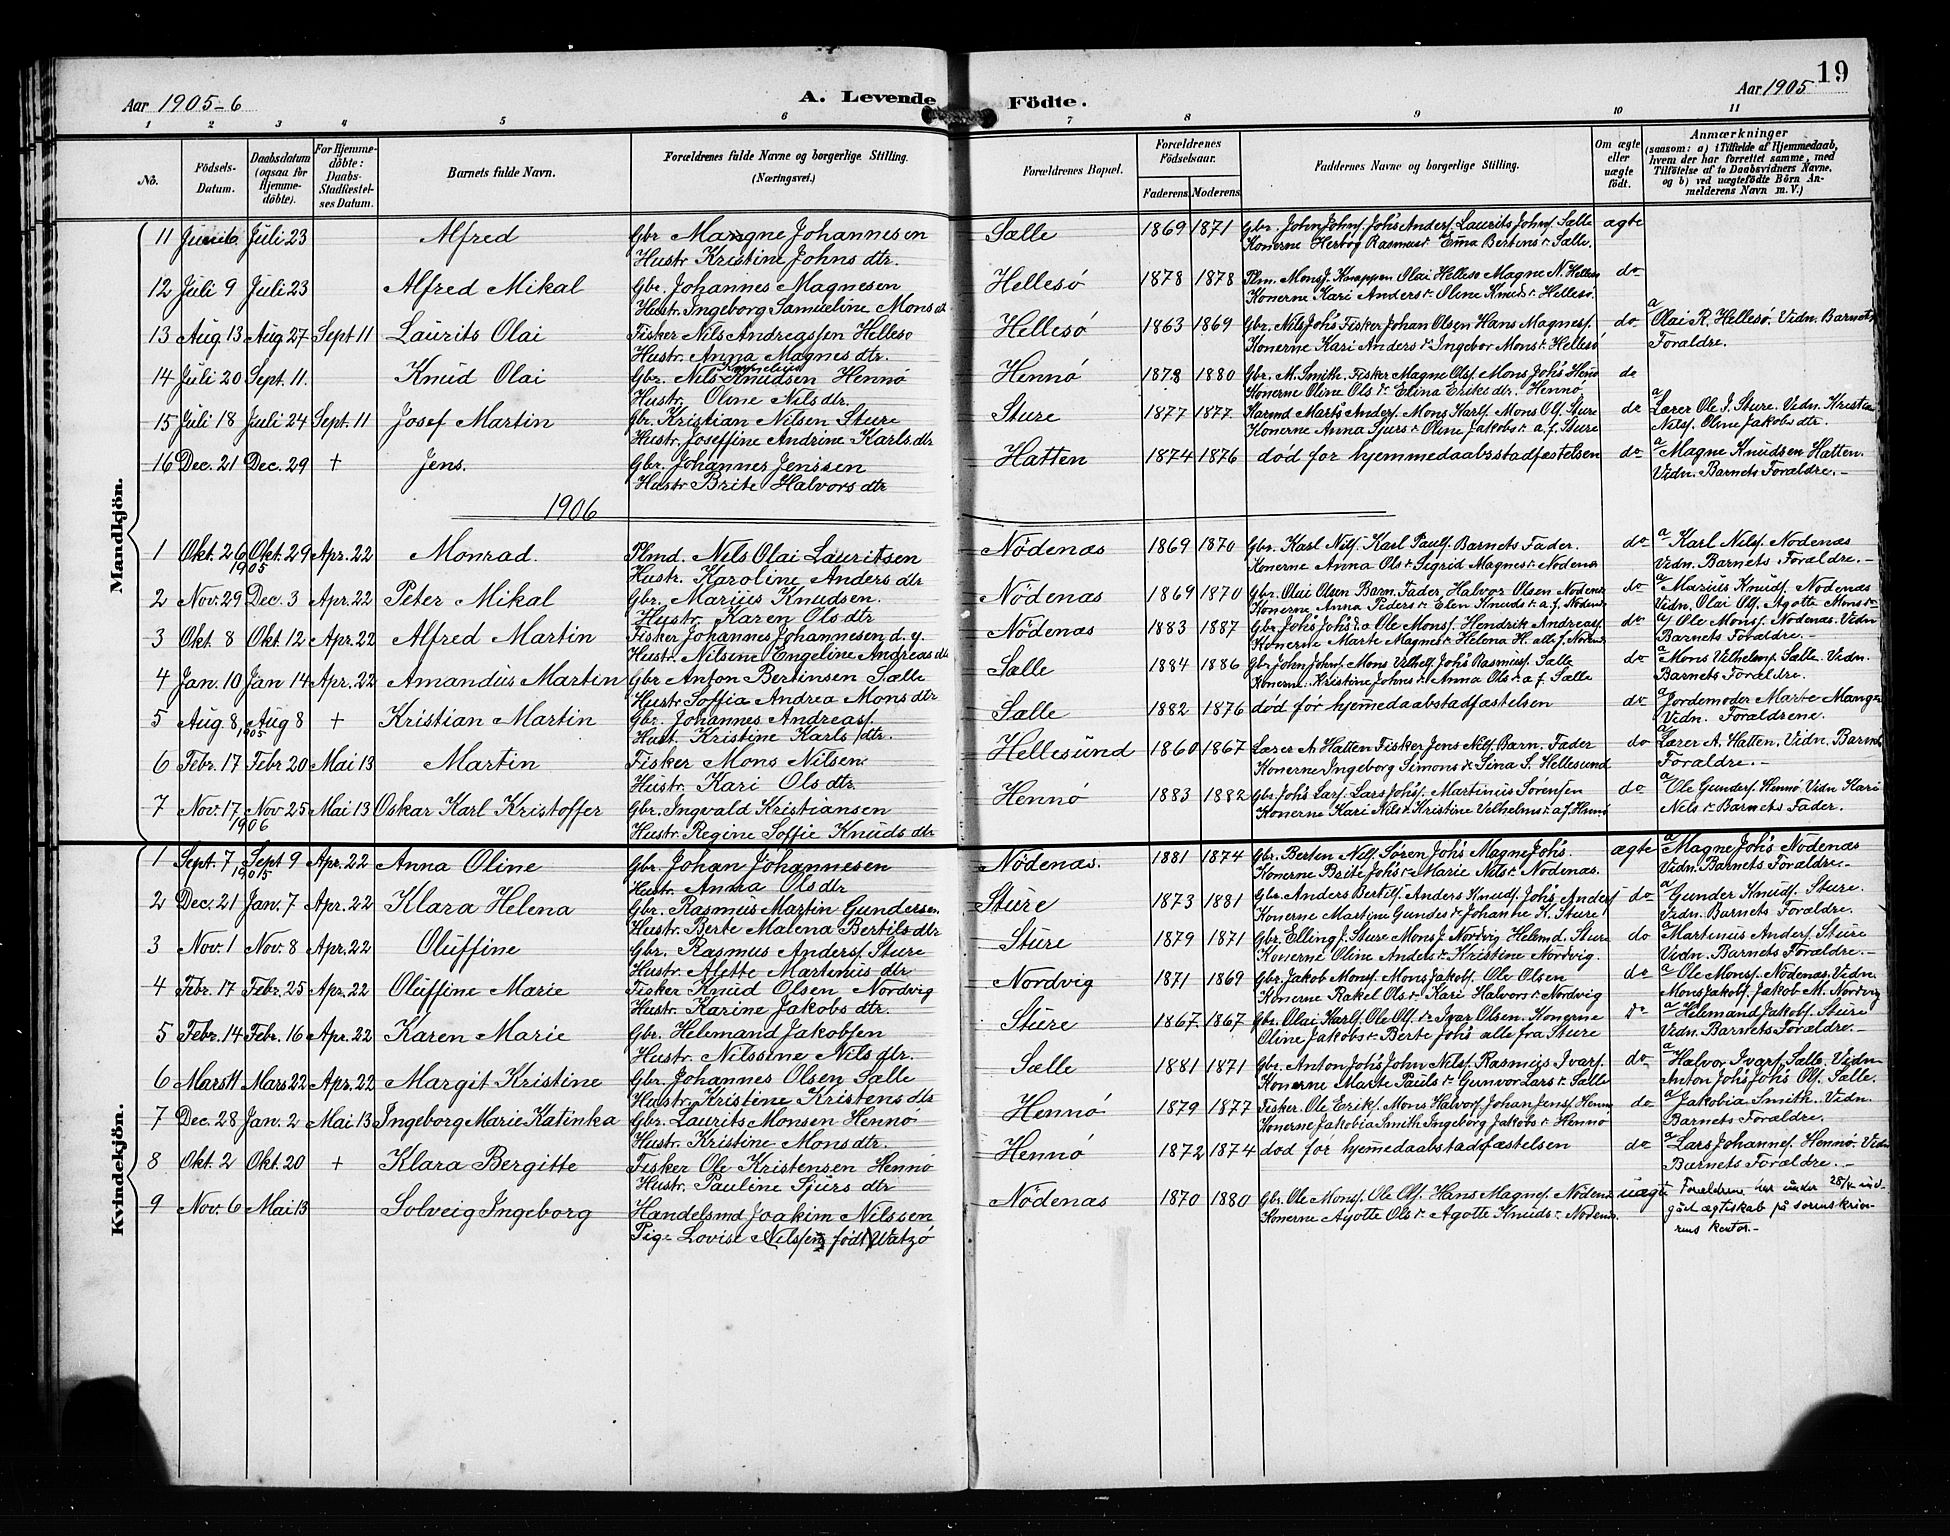 19
Aar 1905-6 A. Levende Födte. Aar 1905
1 2 3 4 5 6 7 8 9 10 11
No. Födsels-Datum. Daabsdatum (ogsaa for Hjemmedöbte). For Hjemmedöbte: Daabs-Stadfæstelses Datum. Barnets fulde Navn. Forældrenes fulde Navne og borgerlige Stilling. (Næringsvei.) Forældrenes Bopæl. Forældrenes Födselsaar. Faderens Moderens Faddernes Navne og borgerlige Stilling. Om ægte eller uægte födt. Anmærkninger (saasom: a) i Tilfælde af Hjemmedaab, hvem der har forrettet samme, med Tilföielse af to Daabsvidners Navne, og b) ved uægtefödte Börn Anmelderens Navn m. V.)
Mandkjön.
11 Juli 23 Alfred Gbr Magne Johannesen Sælle 1869 1871 Gbr. John Johns. Johs Anders. Laurits Johns. Sælle ægte
Hustr Kristine Johns dtr. Konerne Herbog Rasmus Bertens Sælle.
12 Juli 9 Juli 23 Alfred Mikal Gbr. Johannes Magnesen Hellesö 1878 1878 Plm. Mons J. Knappen Olai Helleso Magne N. Helleso do
Hustr. Ingeborg Samueline Mons dt Konerne Kari Anders dr. Oline Knuds dr. Hellesö.
13 Aug 13 Aug 27 Sept 11 Laurits Olai Fisker Nils Andreassen Helleso Hellesö 1863 1869 Gbr. Nils Johs Fisker Johan Olsen Hans Magnes. do a Olai R. Hellesö. Vidn. Barnets
Hustr. Anna Magnes dtr. Konerne Kari Anders dr Ingebor Mons dr Hellesö Foraldre.
14 Juli 20 Sept. 11. Knud Olai Gbr. Nils Kornelius Knudsen Hennö Hennö 1878 1880 Gbr. M. Smith. Fisker Magne Ols. Mons Johs Henö do
Hustr. Oline Nils dtr. Konerne Oline Ols dr. Elina Eriks dtr. Hennö
15 Juli 18 Juli 24 Sept. 11 Josef Martin Gbr. Kristian Nilsen Sture Sture 1877 1877 Marts Anders. Mons Karls. Mons Ols. Sture do a Lærer Ole J. Sture. Vidn. Kristian
Hustr. Joseffine Andrine Karls dtr Konerne Anna Sjurs dr. Oline Jakobs dr. a. f. Sture Nils. Oline Jakobs dtr.
16 Dec. 21 Dec. 29 + Jens. Gbr. Johannes Jenssen Hatten 1874 1876 död for hjemmedaabsstadfæstelsen do a Magne Knudsen Hatten.
Hustr Brite Halvors dtr Vidn. Barnets Foraldre.
1906
1 Okt. 26 1905 Okt. 29 Apr. 22 Monrad. Plmd. Nils Olai Lauritsen Nödenæs 1869 1870 Gbr. Karl Nils. Karl Pauls. Barnets Fader. do a Karl Nils. Nodenæs
Hustr. Karoline Anders dtr Konerne Anna Ols dr. Sigrid Magnes dr. Nödenæs Vidn. Barnets Foraldre.
2 Nov. 29 Dec. 3 Apr. 22 Peter Mikal Gbr. Marius Knudsen. Nödenæs 1869 1870 Gbr. Olai Olsen Barn. Fader. Halvor Olsen Nödenæs do a Marius Knuds. Nodenæs
Hustr Karen Ols dtr Konerne Anna Peders dr. Elen Knuds dr. a. f. Nödenæs Vidn. Olai Ols. Agotte Mons dr
3 Okt. 8 Okt 12 Apr. 22 Alfred Martin Fisker Johannes Johannesen d. y. Nödenæs 1883 1887 Gbr. Johs Johs d. a. Ole Mons. Hendrik Andreas. do a Ole Mons. Nödenæs. Vidn
Hustr. Nilsine Engeline Andreas dtr Konerne Marte Magnes dr. Helena H. alle f. Nodenæs Barnets Foraldre.
4 Jan. 10 Jan 14 Apr. 22 Amandus Martin Gbr Anton Bertinsen Sælle Sælle 1884 1886 Gbr. John Johns. Mons Velhelms. Johs Rasmus. Sælle do a Mons Vilhelms. Sælle. Vidn.
Hustr Soffia Andrea Mons dtr Konerne. Kristine Johns dr. Anna Ols dr. a. f. Sælle Barnets Foraldre.
5 Aug. 8 1905 Aug 8 + Kristian Martin Gbr. Johannes Andreas. Sælle 1882 1876 död før hjemmedaabstadfæstelsen do a Jordemoder Marte Manger
Hust. Kristine Karls dtr. Vidn. Foraldrene.
6 Febr. 17 Febr 20 Mai 13 Martin Fisker Mons Nilsen Hellesund 1860 1867 Lærer A. Hatten Fisker Jens Nils. Barn. Fader do a Lærer A. Hatten. Vidn. Barnets
Hustr. Kari Ols dtr. Konerne Ingeborg Simons dr. Sina S. Hellesund Foraldre.
7 Nov. 17 Nov. 25 Mai 13 Oskar Karl Kristoffer Gbr. Ingvald Kristiansen Hennö 1883 1882 Gbr. Johs Lars. Lars Johs. Martinus Sörensen do a Ole Gunders. Hennö Vidn Kari
1906 Hustr. Regine Soffie Knuds dtr Konerne Kari Nils dr. Kristine Velhelms dr. a. f. Hennö Nils dr. Barnets Fader.
Kvindekjön.
1 Sept. 7 1905 Sept 9 Apr. 22 Anna Oline Gbr. Johan Johannesen Nödenæs. 1881 1874 Gbr. Berten Nils. Sören Johs Magne Johs. ægte a Magne Johs Nödenæs
Hustr. Anna Ols dtr Konerne Brite Johs dr. Marie Nils dr. Nödenæs. Vidn. Barnets Foraldre.
2 Dec. 21 Jan. 7 Apr. 22 Klara Helena Gbr. Rasmus Martin Gundersen Sture 1873 1881 Gbr. Anders Bertils. Anders Knuds. Johs Anders. do a Gunder Knuds. Sture.
Hustr. Berte Malena Bertils dtr Konerne Martine Gundes dr. Johanne K. Sture Vidn. Barnets Foraldre.
3 Nov. 1 Nov. 8 Apr. 22 Oluffine Gbr. Rasmus Anders. Sture Sture 1879 1871 Gbr. Elling J. Sture Mons J. Nordvig Helemd. Sture do a Martinus Anders. Sture
Hustr. Alette Martinus dtr Konerne Oline Anders dr. Kristine Nordvig. Vidn. Barnets Foraldre.
4 Febr. 17 Febr. 25 Apr. 22 Oluffine Marie Fisker Knud Olsen Nordvig Nordvig 1871 1869 Gbr. Jakob Mons. Mons Jakobs. Ole Olsen do a Ole Mons. Nödenæs. Vidn.
Hustr. Karine Jakobs dtr. Konerne Rakel Ols dr. Kari Halvors dr. Nordvig Mons Jakobs. Jakob M. Nordvig
5 Febr. 14 Febr. 16 Apr. 22 Karen Marie Gbr. Helemand Jakobsen Sture 1867 1867 Gbr. Olai Karls. Ole Ols. Ivar Olsen. Konerne do a Helemand Jakobs. Sture
Hustr. Nilssine Nils dtr. Oline Jakobs dr. Berte Johs alle fra Sture Vidn. Barnets Foraldre.
6 Mars 11 Mars. 22 Apr. 22 Margit Kristine Gbr. Johannes Olsen Sælle Sælle 1881 1871 Gbr. Anton Johs John Nils. Rasmus Ivars. do a Halvor Ivars. Sælle. Vidn
Hustr. Kristine Kristens dtr Konerne Marte Pauls dr. Gunvor Lars dr. Sælle Anton Johs Johs Ols. Sælle.
7 Dec. 28 Jan. 2 Mai 13 Ingeborg Marie Katinka Gbr. Laurits Monsen Hennö Hennö 1879 1877 Fisker. Ole Eriks. Mons Halvors. Johan Jens. Henno do a Jakobia Smith. Vidn.
Hustr. Kristine Mons dtr. Konerne Jakobia Smith Ingeborg Jakobs dr. Hennö Barnets Foraldre.
8 Okt. 2 Okt. 20 + Klara Bergitte Fisker Ole Kristensen Hennö Hennö 1872 1874 död før hjemmedaabstadfæstelsen do a Lars Johannes. Hennö. Vidn
Hustr. Pauline Sjurs dtr Barnets Foraldre.
9 Nov. 6 Mai 13 Solveig Ingeborg Handelsmd Joakim Nilssen Nödenæs 1870 1880 Gbr. Ole Mons. Ole Ols. Hans Magnes. Nödenæs uægte Forældrene har under 25/4 ind-
Pige Lovise Nilssen født Vatzö Konerne Agotte Ols dr. Agotte Knuds dr. Nodenæs. gaat ægtiskab på sorenskrive-
rens kontor.